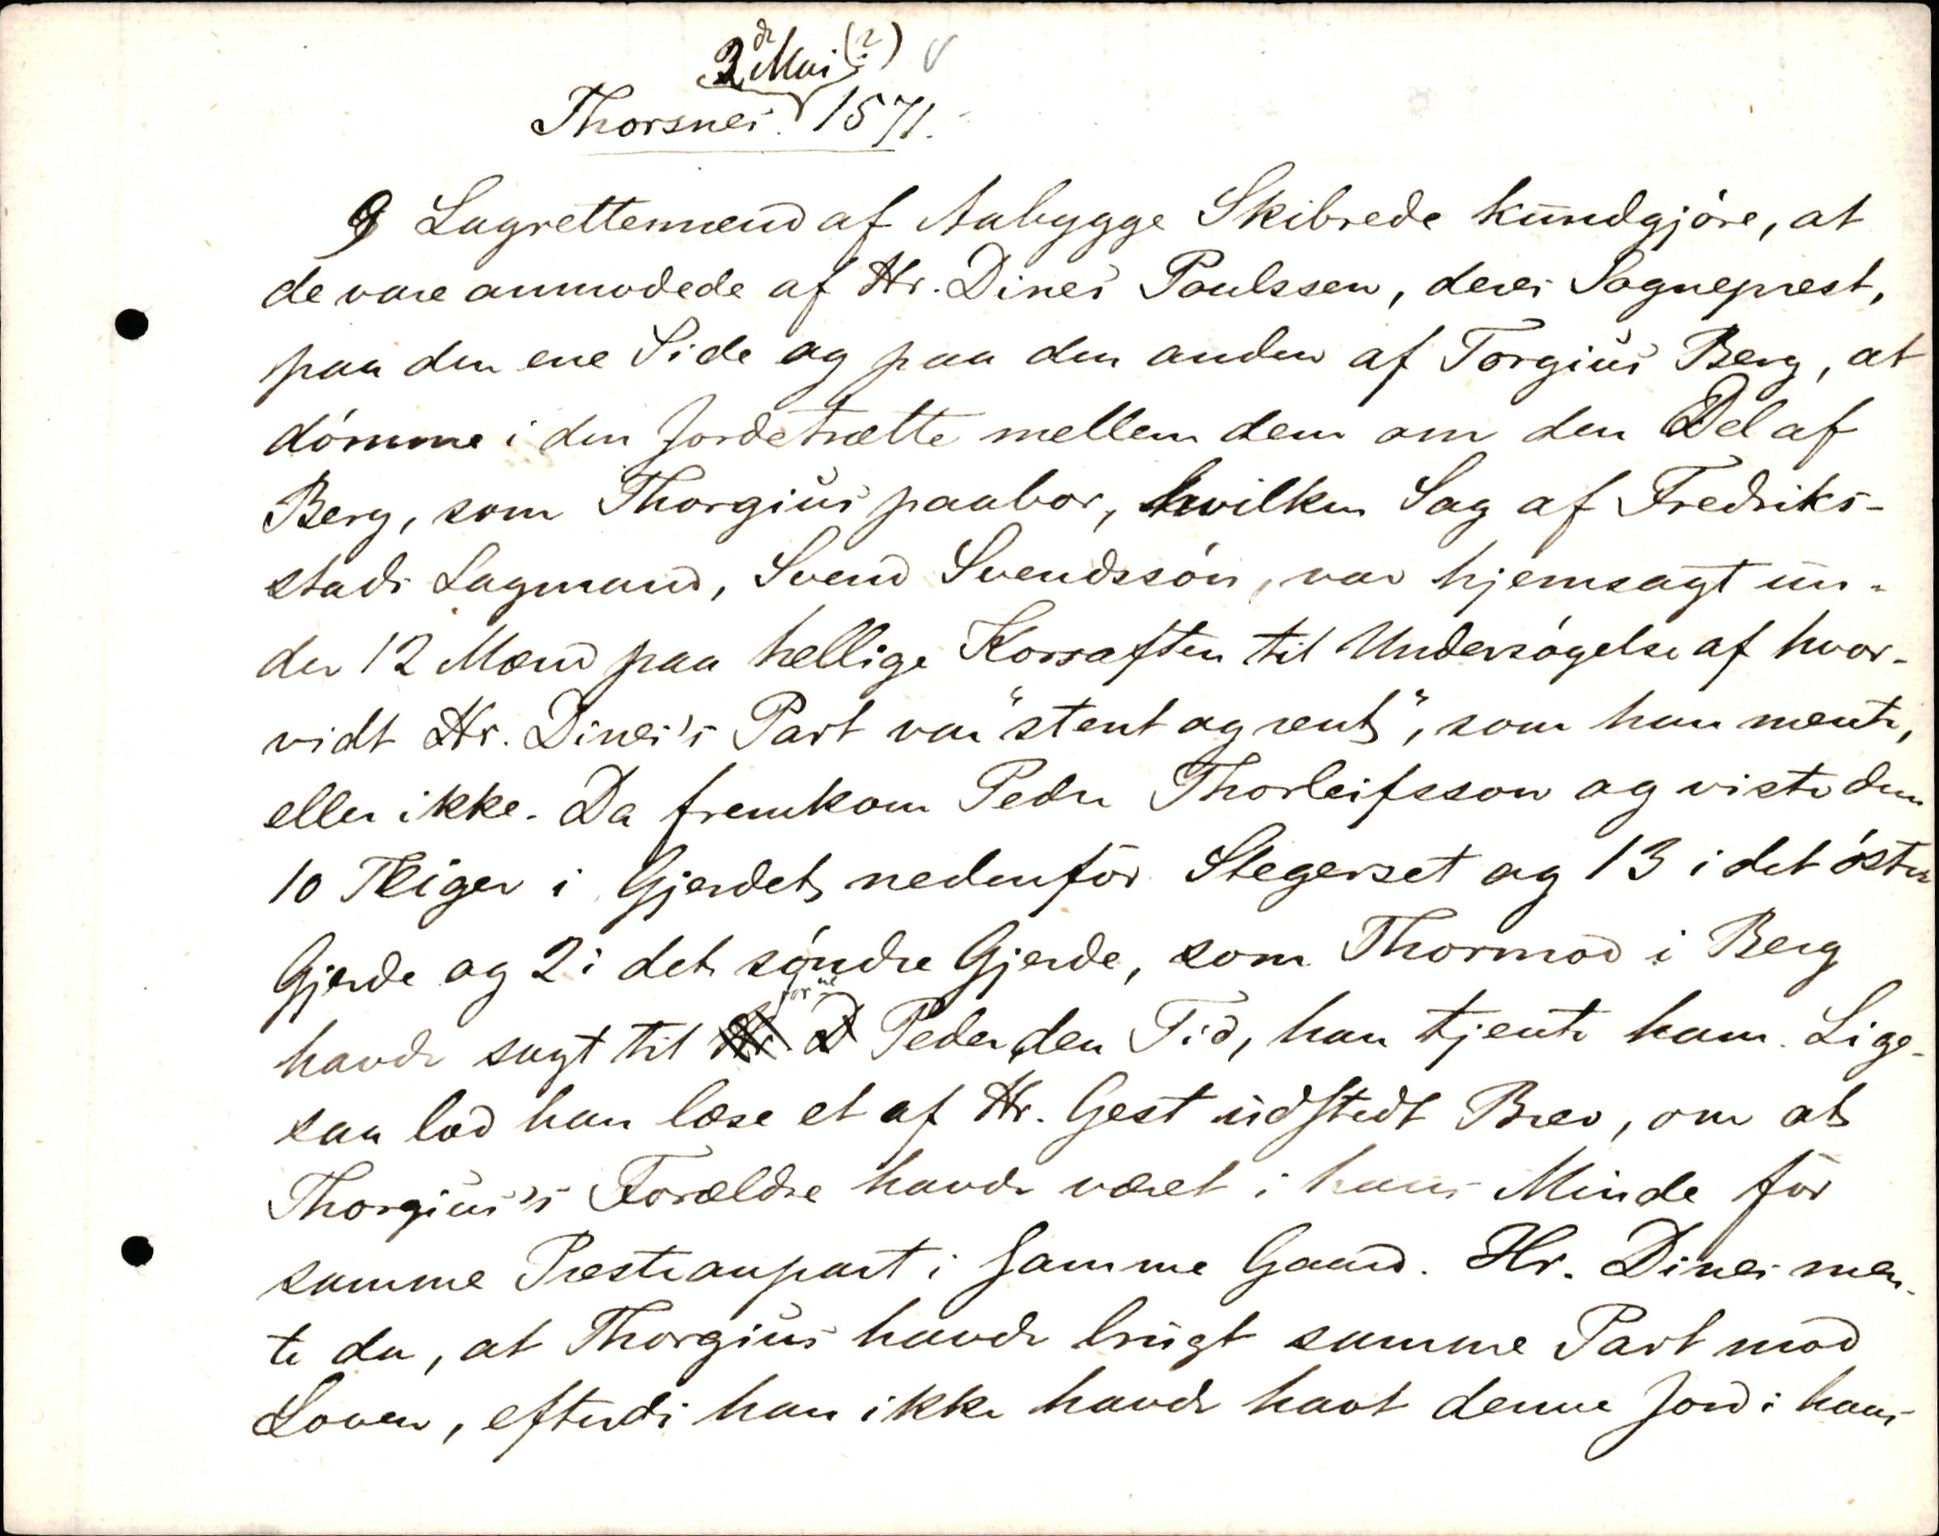 2de Mai (?)
Thorsnes. 1571.
9 Lagrettemænd af Aabygge Skibrede kundgjöre, at
de vare anmodede af Hr. Dines Poulssen, deres Sogneprest,
paa den ene Side og paa den anden af Torgius Berg, at
dömme i den Jordetrætte mellem dem om den Del af
Berg, som Thorgius paabor, hvilken Sag af Fredriks-
stads Lagmand, Svend Svendssön, var hjemsagt un-
der 12 Mænd paa hellige Korsaften til Undersögelse af hvor-
vidt Hr. Dines's Part var "stent og rent", som han mente,
eller ikke. Da fremkom Peder Thorleifsson og viste dem
10 Teiger i Gjerdet nedenfor Stegerset og 13 i det östre
Gjerde og 2 i det söndre Gjerde, som Thormod i Berg
havde sagt til forne Peder, den Tid, han tjente ham. Lige-
saa lod han læse et af Hr. Gest udstedt Brev, om at
Thorgius's Forældre havde været i hans Minde for
samme Presteanpart i samme Gaard. Hr. Dines men-
te da, at Thorgius havde brugt samme Part mod
Loven, efterdi han ikke havde havt denne Jord i hans